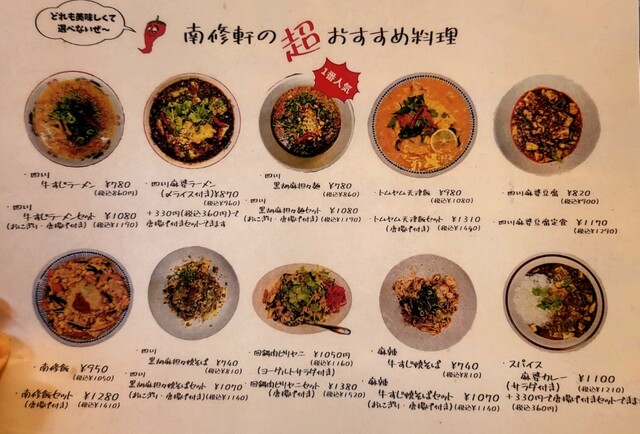 どれも美味しくて
選べないぜ〜
南修軒の超おすすめ料理
1番人気
・四川
牛すじラーメン ¥780
(税込860円)
・四川
牛すじラーメンセット ¥1080
(おにぎり・唐揚げ付き) (税込¥1190)
・四川麻婆ラーメン
(〆ライス付き) ¥870
(税込¥960)
+330円(税込360円)で
唐揚げ付きセットできます
・四川
黒胡麻担々麺 ¥780
(税込¥860)
・四川
黒胡麻担々麺セット ¥1080
(おにぎり・唐揚げ付き) (税込¥1190)
・トムヤム天津飯 ¥980
(税込¥1080)
・トムヤム天津飯セット ¥1310
(唐揚げ付き) (税込¥1440)
・四川麻婆豆腐 ¥820
(税込¥900)
・四川麻婆豆腐定食 ¥1170
(税込¥1290)
・南修飯 ¥950
(税込¥1050)
・南修飯セット ¥1280
(唐揚げ付き) (税込¥1410)
・四川
黒胡麻担々焼そば ¥740
(税込¥810)
・四川
黒胡麻担々焼そばセット ¥1070
(おにぎり・唐揚げ付き) (税込¥1140)
・回鍋肉ビリヤニ ¥1050円
(税込¥1160)
(ヨーグルトサラダ付き)
・回鍋肉ビリヤニセット ¥1380
(唐揚げ付き) (税込¥1520)
・麻辣
牛すじ焼そば ¥740
(税込¥810)
・麻辣
牛すじ焼そばセット ¥1070
(おにぎり・唐揚げ付き) (税込¥1140)
・スパイス
麻婆カレー ¥1100
(サラダ付き) (税込¥1210)
+330円で唐揚げ付きセットできます
(税込360円)